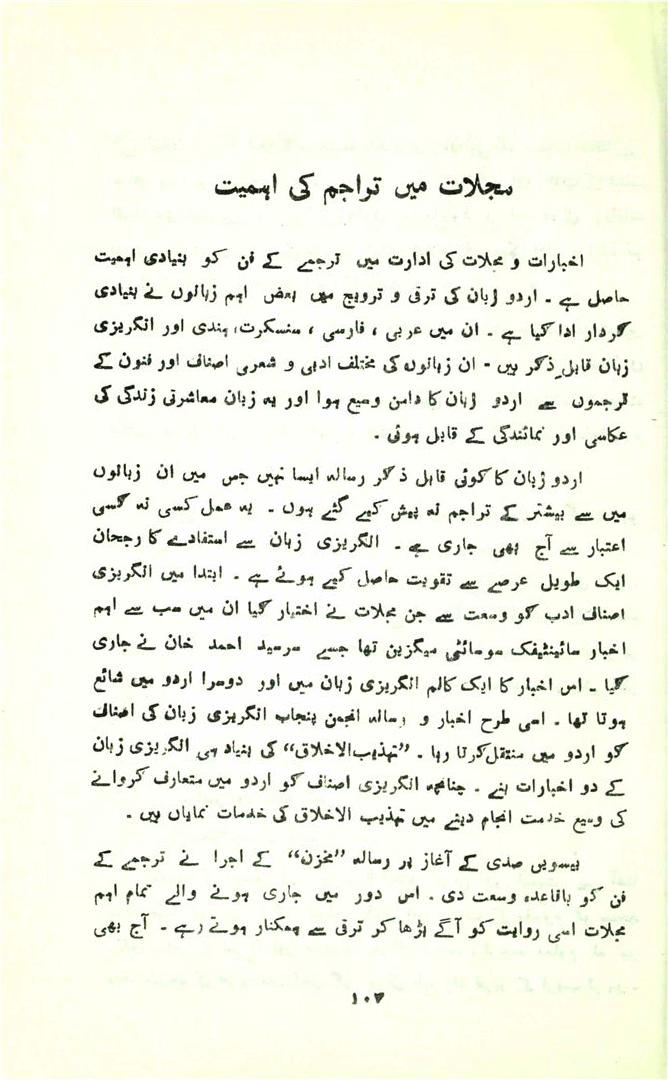 مجلات میں تراجم کی اہمیت
اخبارات و مجلات کی ادارت میں ترجمے کے فن کو بنیادی اہمیت
حاصل ہے ۔ اردو زبان کی ترقی و ترویج میں بعض اہم زبانوں نے بنیادی
کردار ادا کیا ہے ۔ ان میں عربی ، فارسی ، سنسکرت، ہندی اور انگریزی
زبان قابلِ ذکر ہیں - ان زبانوں کی مختلف ادبی و شعری اصناف اور فنون کے
ترجموں سے اردو زبان کا دامن وسیع ہوا اور یہ زبان معاشرتی زندگی کی
عکاسی اور نمائندگی کے قابل ہوئی ۔
اردو زبان کا کوئی قابل ذکر رسالہ ایسا نہیں جس میں ان زبانوں
میں سے بیشتر کے تراجم نہ پیش کیے گئے ہوں ۔ یہ عمل کسی نہ کسی
اعتبار سے آج بھی جاری ہے ۔ انگریزی زبان سے استفادے کا رجحان
ایک طویل عرصے سے تقویت حاصل کیے ہوئے ہے ۔ ابتدا میں انگریزی
اصناف ادب کو وسعت سے جن مجلات نے اختیار کیا ان میں سب سے اہم
اخبار سائینٹیفک سوسائٹی میگزین تھا جسے سرسید احمد خان نے جاری
کیا ۔ اس اخبار کا ایک کالم انگریزی زبان میں اور دوسرا اردو میں شائع
ہوتا تھا ۔ اسی طرح اخبار و رسالہ انجمن پنجاب انگریزی زبان کی اصناف
کو اردو میں منتقل کرتا رہا ۔ ”تہذیب الاخلاق“ کی بنیاد ہی انگریزی زبان
کے دو اخبارات بنے ۔ چنانچہ انگریزی اصناف کو اردو میں متعارف کروانے
کی وسیع خدمت انجام دینے میں تہذیب الاخلاق کی خدمات نمایاں ہیں ۔
بیسویں صدی کے آغاز پر رسالہ ”مخزن“ کے اجرا نے ترجمے کے
فن کو باقاعدہ وسعت دی ۔ اس دور میں جاری ہونے والے تمام اہم
مجلات اسی روایت کو آگے بڑھا کر ترقی سے ہمکنار ہوتے رہے ۔ آج بھی